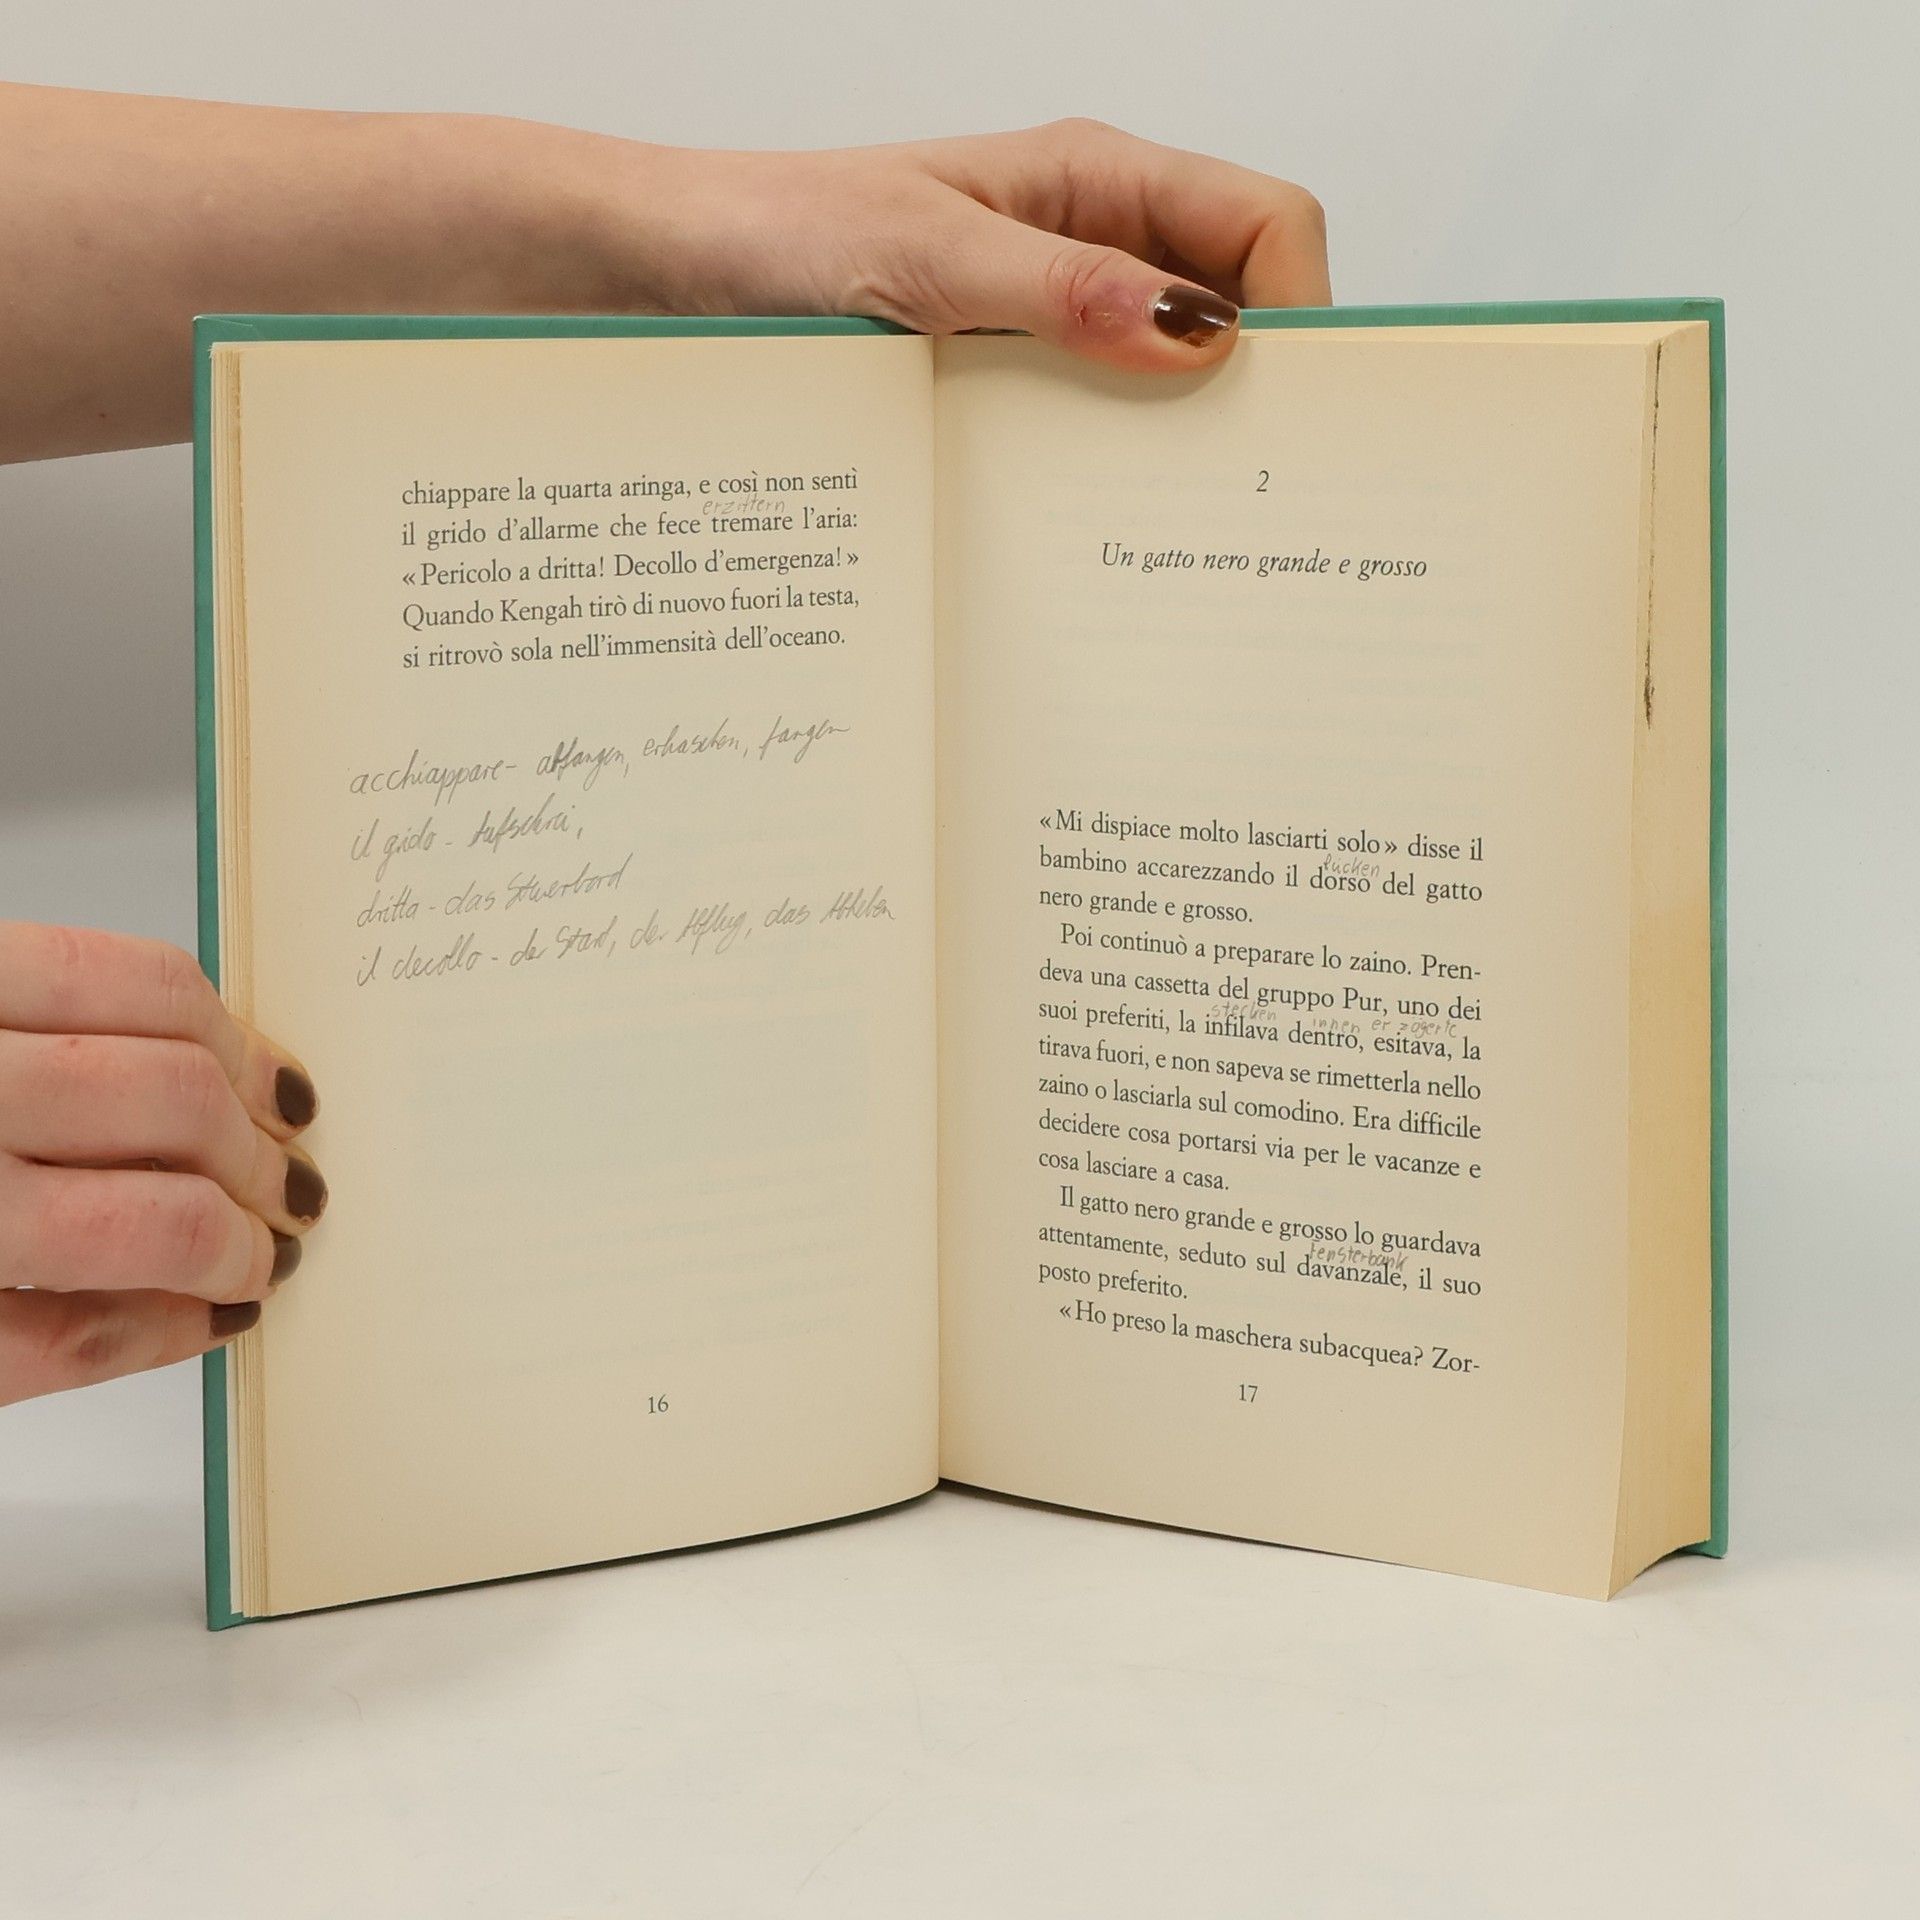 chiappare la quarta aringa, e così non sentì
erzittern
il grido d'allarme che fece tremare l'aria:
«Pericolo a dritta! Decollo d'emergenza!»
Quando Kengah tirò di nuovo fuori la testa,
si ritrovò sola nell'immensità dell'oceano.
acchiappare - abfangen, erhaschen, fangen
il grido - Aufschrei,
dritta - das Stuerbord
il decollo - der Start, der Abflug, das Abheben
16
2
Un gatto nero grande e grosso
«Mi dispiace molto lasciarti solo» disse il
Rücken
bambino accarezzando il dorso del gatto
nero grande e grosso.
Poi continuò a preparare lo zaino. Pren-
deva una cassetta del gruppo Pur, uno dei
stecken innen er zögerte
suoi preferiti, la infilava dentro, esitava, la
tirava fuori, e non sapeva se rimetterla nello
zaino o lasciarla sul comodino. Era difficile
decidere cosa portarsi via per le vacanze e
cosa lasciare a casa.
Il gatto nero grande e grosso lo guardava
Fensterbank
attentamente, seduto sul davanzale, il suo
posto preferito.
«Ho preso la maschera subacquea? Zor-
17